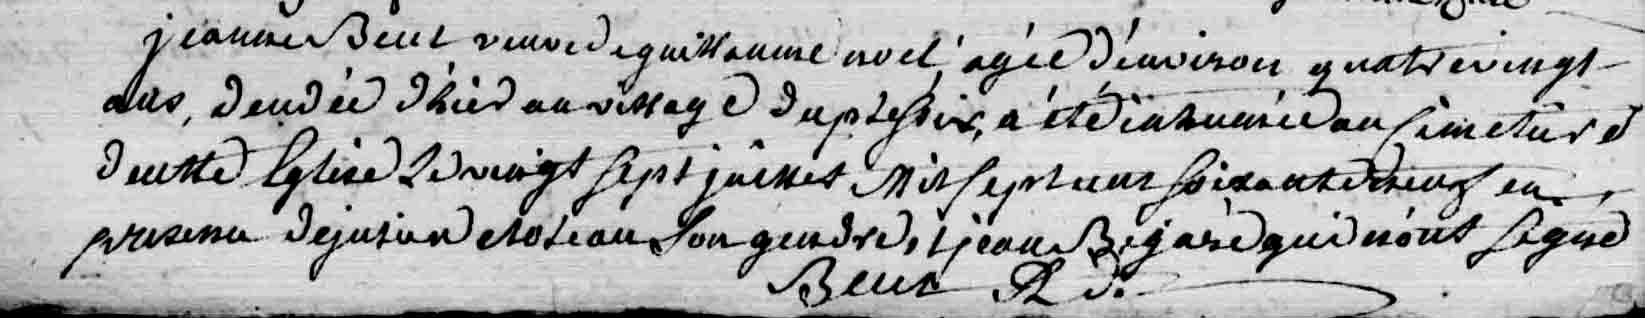 jeanne Beut veuve de guillaume noel, agée d'environ quatre vingt
ans, decedée d'hier au village du plessix, a été inhumée au cimetiere
de cette Eglise le vingt sept juillet mil sept cent soixante deux en
presence de julien son gendre, et jean Bigaré qui n'ont signé
Beut Rr.